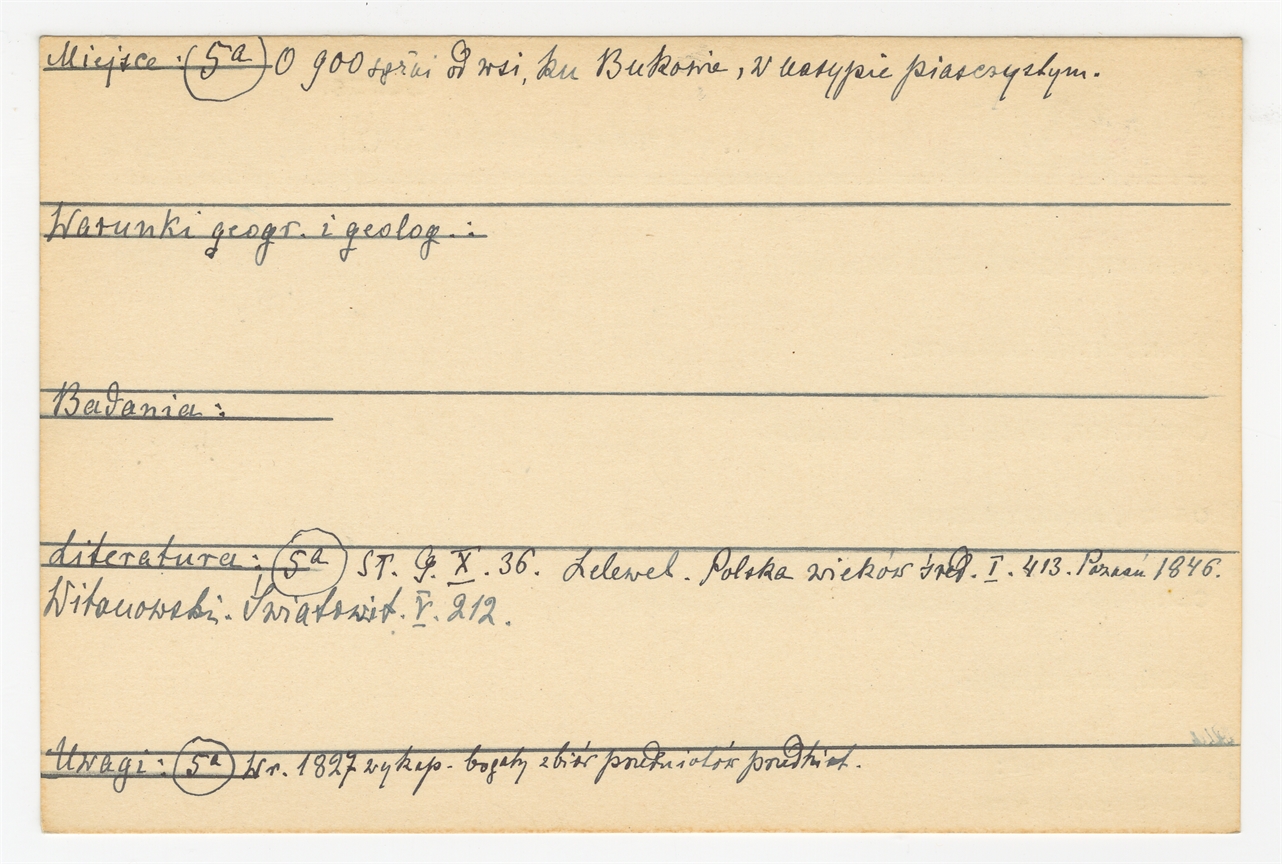 Miejsce : 5a O 900 sążni od wsi, ku Bukowie, w nasypie piasczystym.
Warunki geogr. i geolog. :
Badania :
Literatura : 5a ST. G. X. 36. Lelewel. Polska wieków śred. I. 413. Poznań 1846.
Witanowski. Światowit. V. 212.
Uwagi : 5a W r. 1827 wykop. bogaty zbiór przedmiotów przedhist.